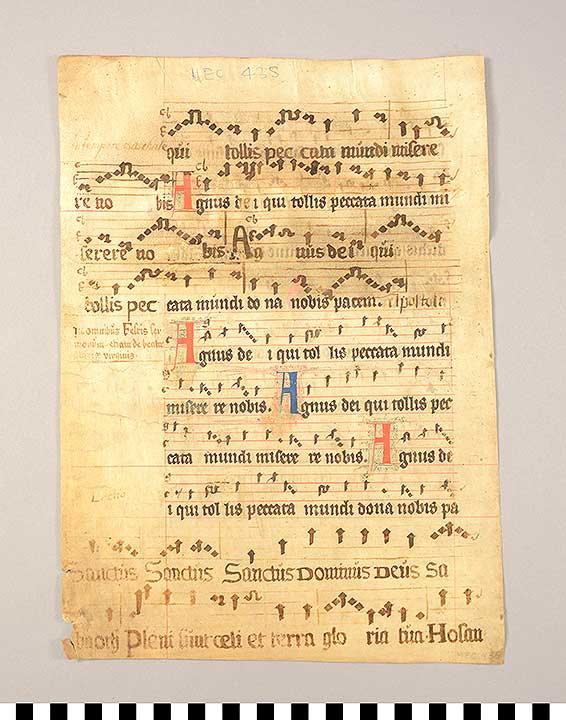 MEC 438
qui tollis pec cata mundi misere
re no bis Agnus de i qui tollis peccata mundi mi
serere no bis. Ag nus dei qui
tollis pec cata mundi do na nobis pacem.
In omnibus Festis
Agnus de i qui tol lis peccata mundi
virginis
misere re nobis. Agnus dei qui tollis pec
cata mundi misere re nobis. Agnus de
i qui tol lis peccata mundi dona nobis pa
Sanctus Sanctus Sanctus Dominus Deus Sa
baoth Pleni sunt celi et terra glo ria tua Hosan